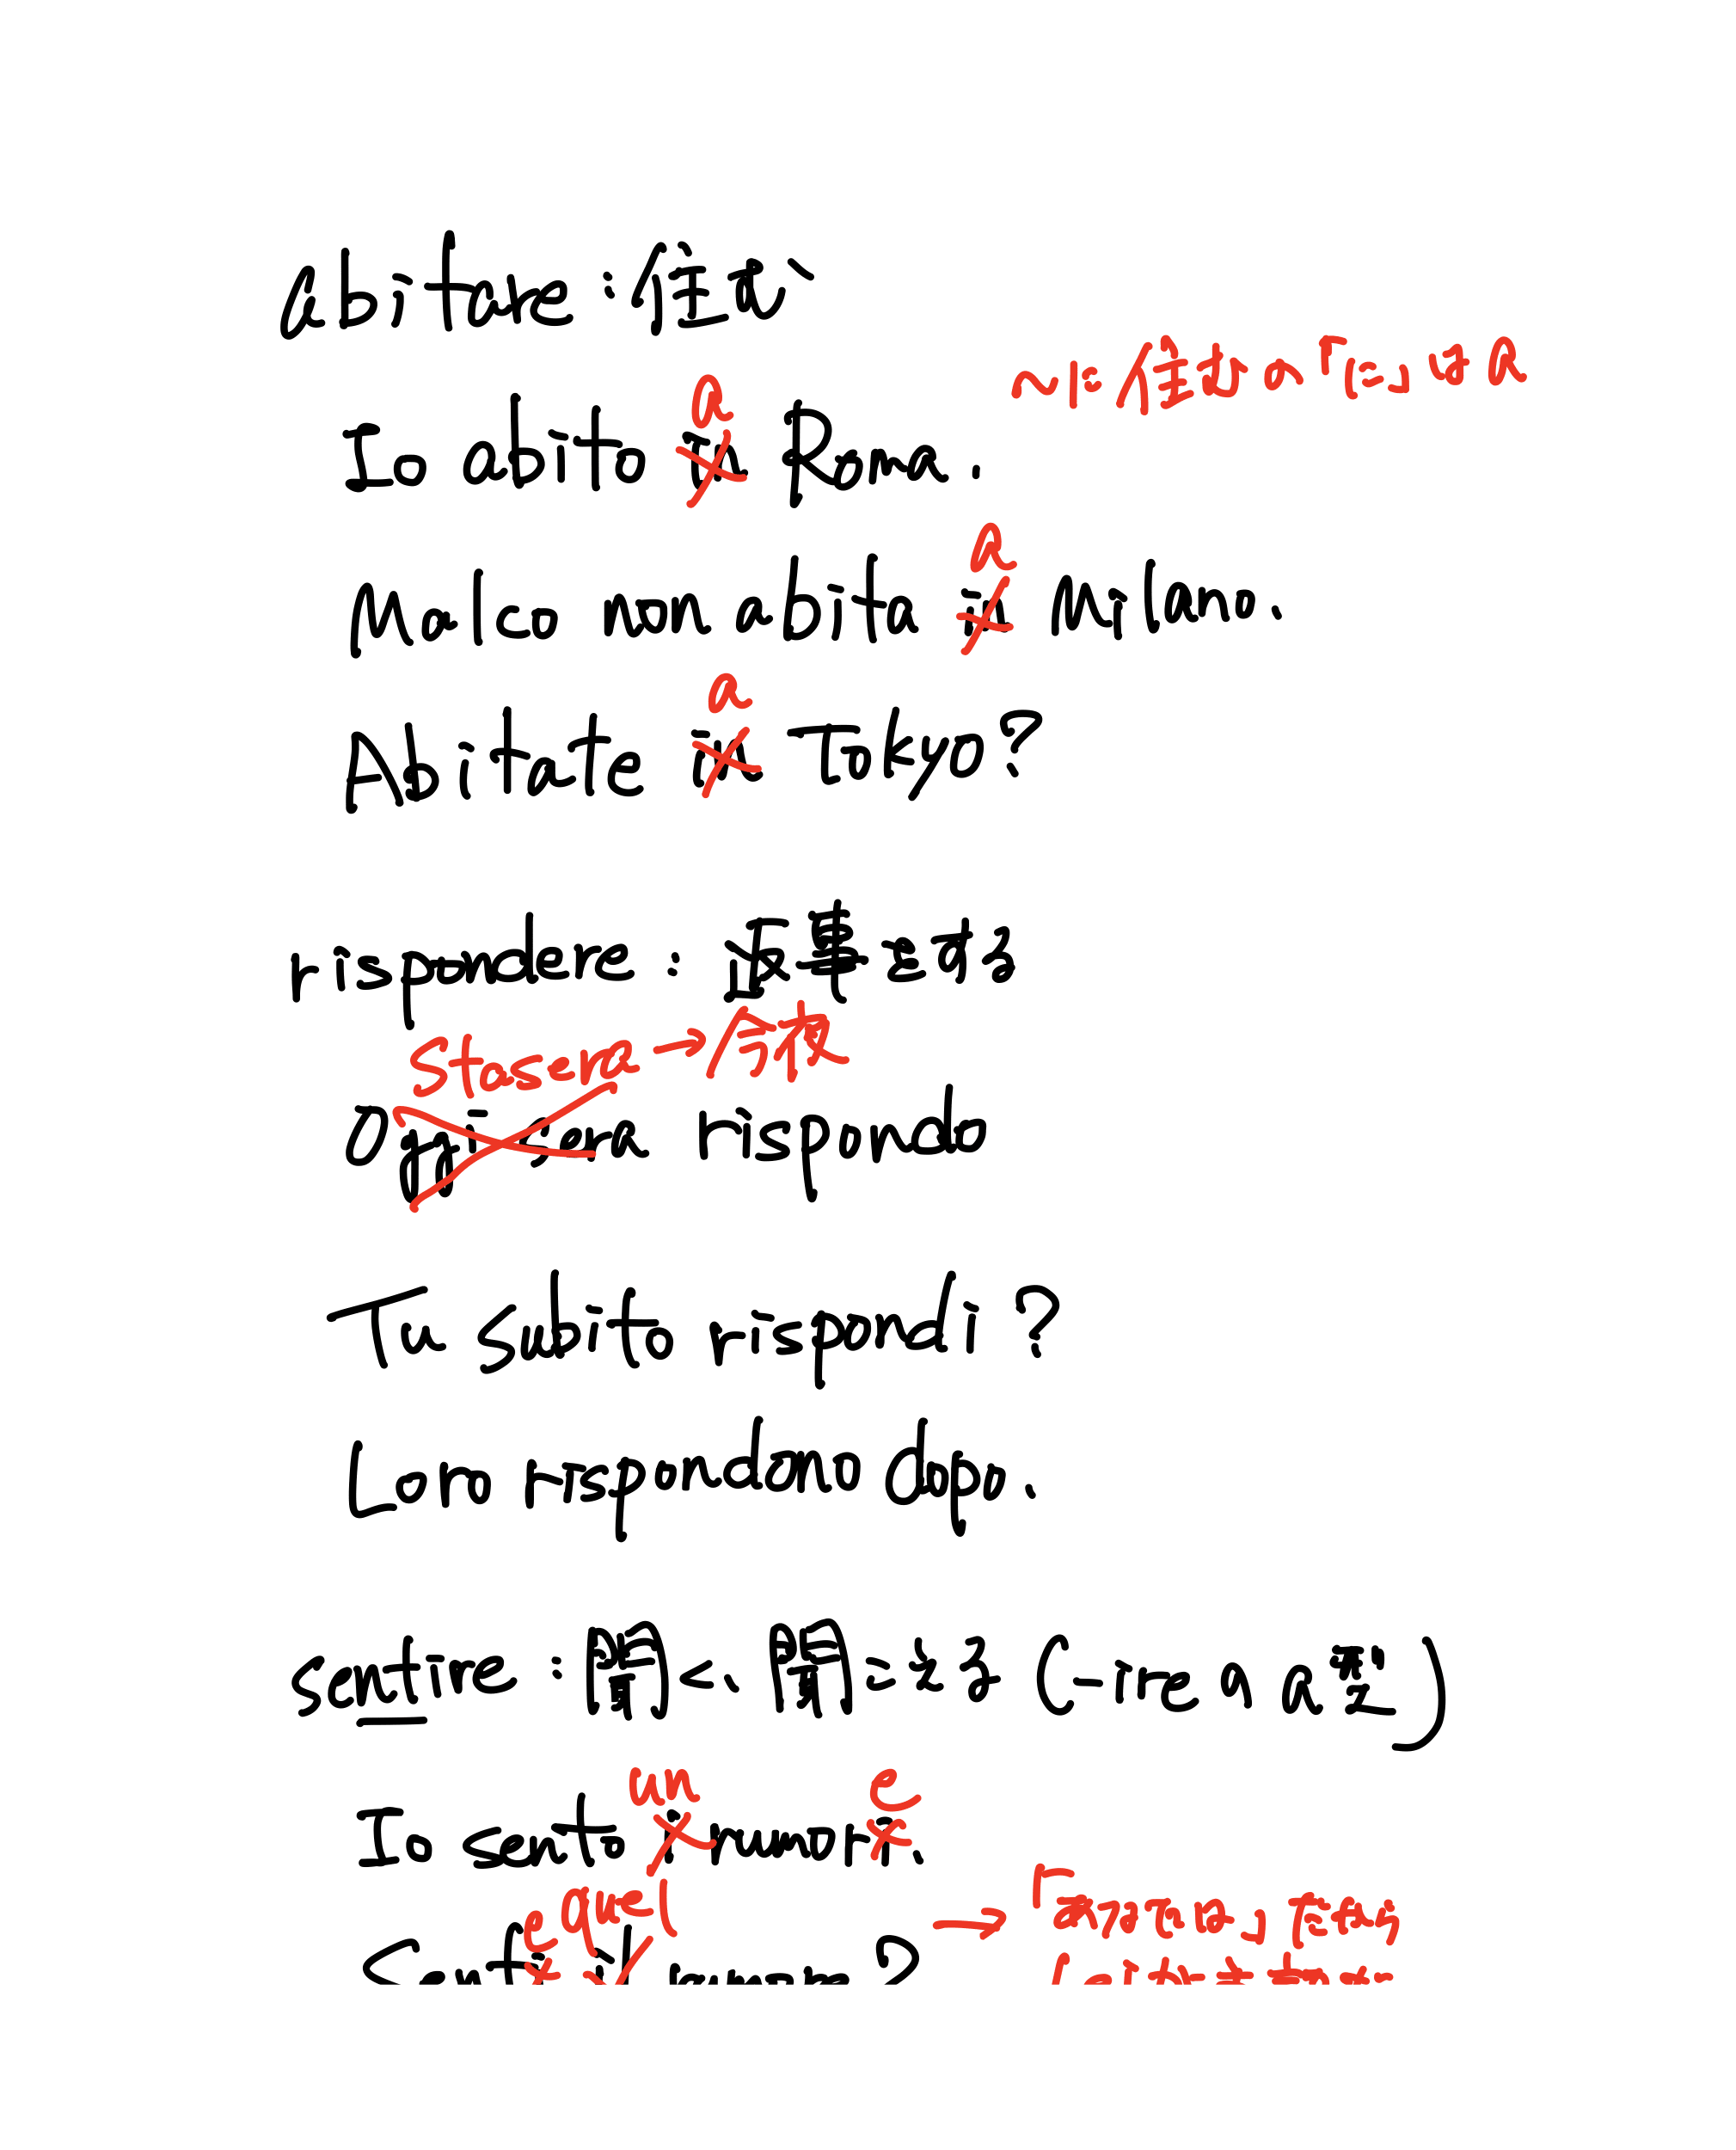 abitare : 住む
~に住むの「に」は a
a
Io abito in Roma.
a
Malco non abita in Milano.
a
Abitate in Tokyo?
rispondere : 返事をする
Stasera → 今夜
Oggi sera rispondo
Tu subito rispondi?
Loro rispondono dopo.
sentire : 聞く、聞こえる (-ire の a型)
un e
Io sento i rumori.
e quel